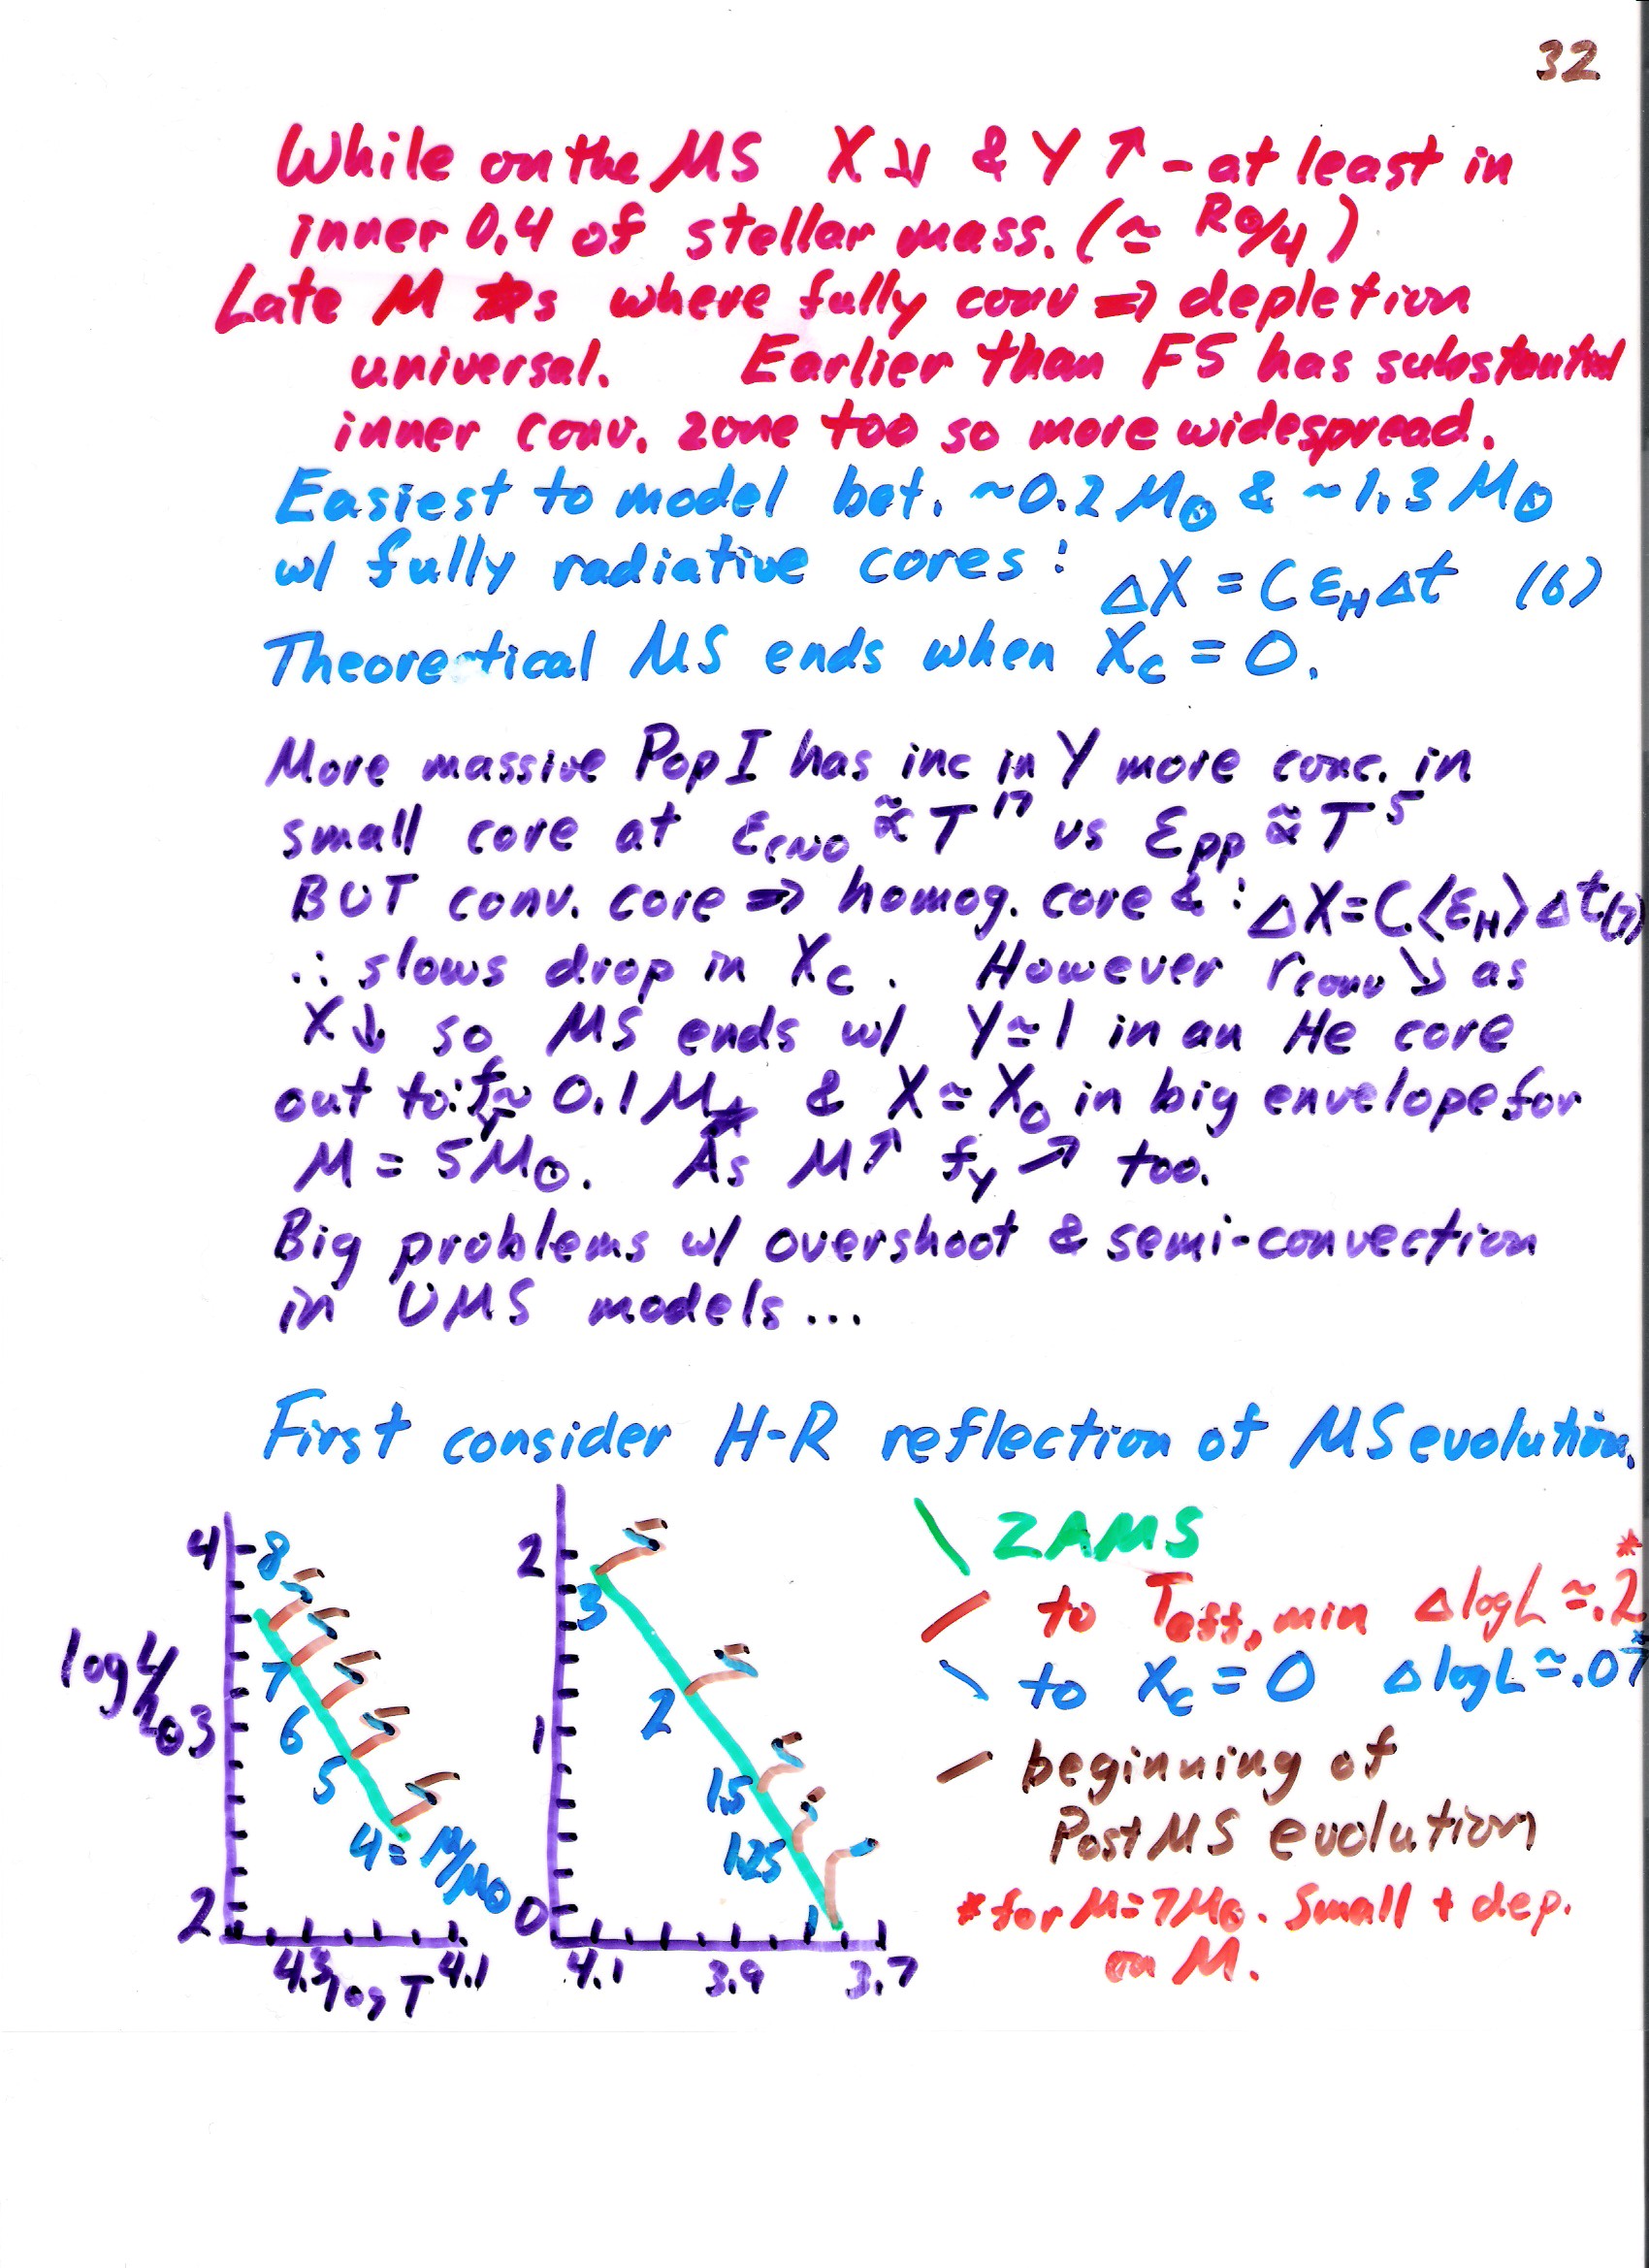 32
While on the MS X ↓ & Y ↑ - at least in
inner 0.4 of stellar mass. (≃ R⊙/4)
Late M ★s where fully conv ⇒ depletion
universal. Earlier than F5 has substantial
inner conv. zone too so more widespread.
Easiest to model bet. ~0.2 M⊙ & ~1.3 M⊙
w/ fully radiative cores: ΔX = C ε_H Δt (6)
Theoretical MS ends when X_c = 0.
More massive Pop I has inc in Y more conc. in
small core at ε_CNO ∝̃ T^17 vs ε_pp ∝̃ T^5
BUT conv. core ⇒ homog. core & : ΔX = C⟨ε_H⟩Δt (7)
∴ slows drop in X_c. However r_conv ↘ as
X↓ so MS ends w/ Y≃1 in an He core
out to: f_Y ≈ 0.1 M★ & X ≃ X₀ in big envelope for
M = 5M⊙. As M↑ f_Y ↗ too.
Big problems w/ overshoot & semi-convection
in UMS models...
First consider H-R reflection of MS evolution.
4 8
7
6
5
4 = M/M⊙
log L/L⊙
3
2
4.3 log T 4.1
2
3
2
1
1.5
1.25
1
0
4.1 3.9 3.7
\ ZAMS
/ to Teff, min Δ log L ≃ .2*
\ to X_c = 0 Δ log L ≃ .07*
– beginning of
Post MS evolution
* for M = 7M⊙. Small + dep.
on M.